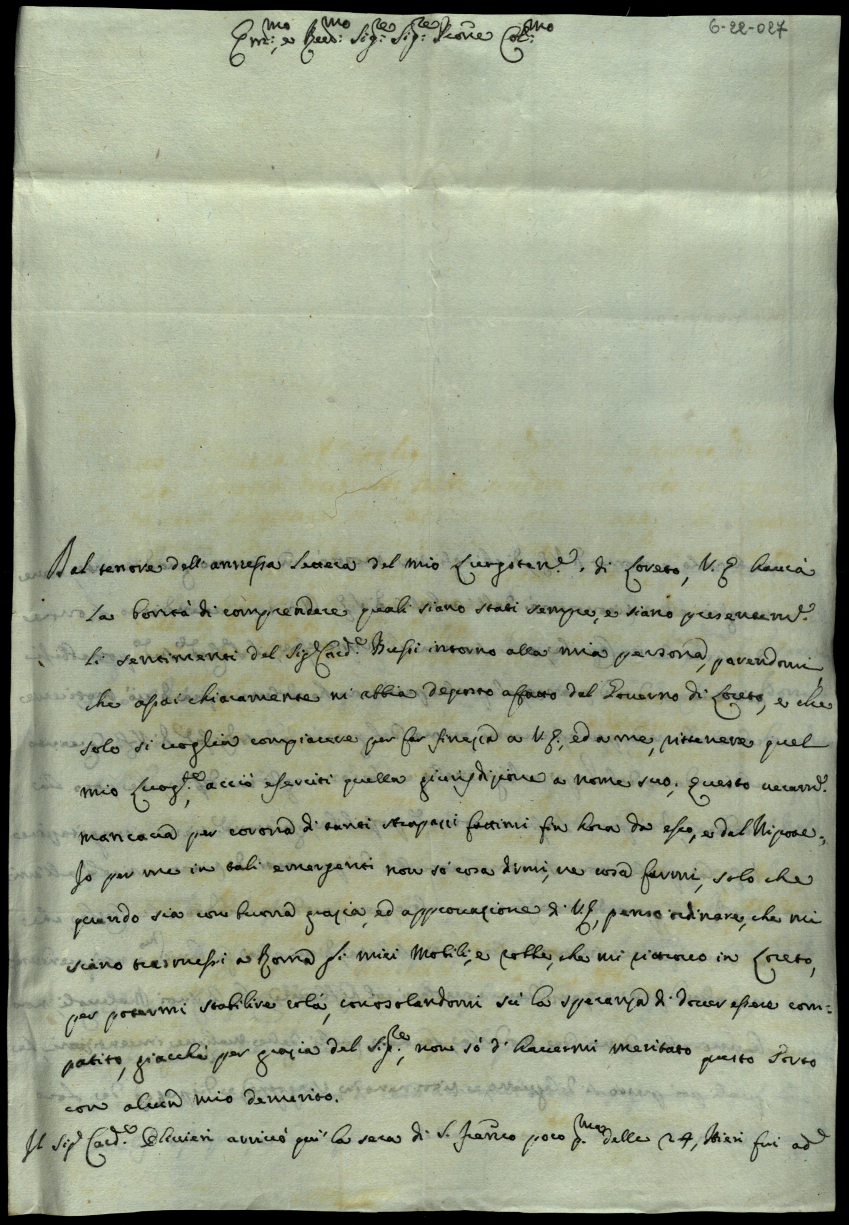 Em.mo, e Rev.mo Sig.re Sig.re Prone Col.mo
6-22-027
Dal tenore dell'annessa Lettera del mio Luogoten.e di Loreto, V.E. havrà
la bontà di comprendere quali siano stati sempre, e siano presentem.e
li sentimenti del Sig.r Card.e Bussi intorno alla mia persona, parendomi
che assai chiaramente m'abbia deposto affatto dal Governo di Loreto, e che
solo si voglia compiacere per far finezza a V.E., ed a me, ritenere quel
mio Luog.te, acciò eserciti quella giurisdizione a nome suo. Questo veram.e
mancava per corona di tanti strapazzi fattimi fin hora da esso, e dal Nipote.
Io per me in tali emergenti non sò cosa dirmi, ne cosa farmi, solo che
quando sia con buona grazia, ed approvazione di V.E., penso ordinare, che mi
siano trasmessi a Roma li miei Mobili, e robbe, che mi ritrovo in Loreto,
per potermi stabilire colà, consolandomi sù la speranza di dover essere com=
patito, giacchè per grazia del Sig.re, non sò d'havermi meritato questo torto
con alcun mio demerito.
Il Sig.r Card.e Olivieri arrivò quì la sera di S. Franco poco p.ma delle 24, Hieri fui ad